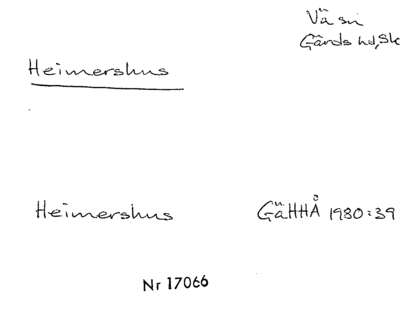 Vä sn
Gärds hd, Sk
Heimershus
Heimershus GäHHÅ 1980:39
Nr 17066